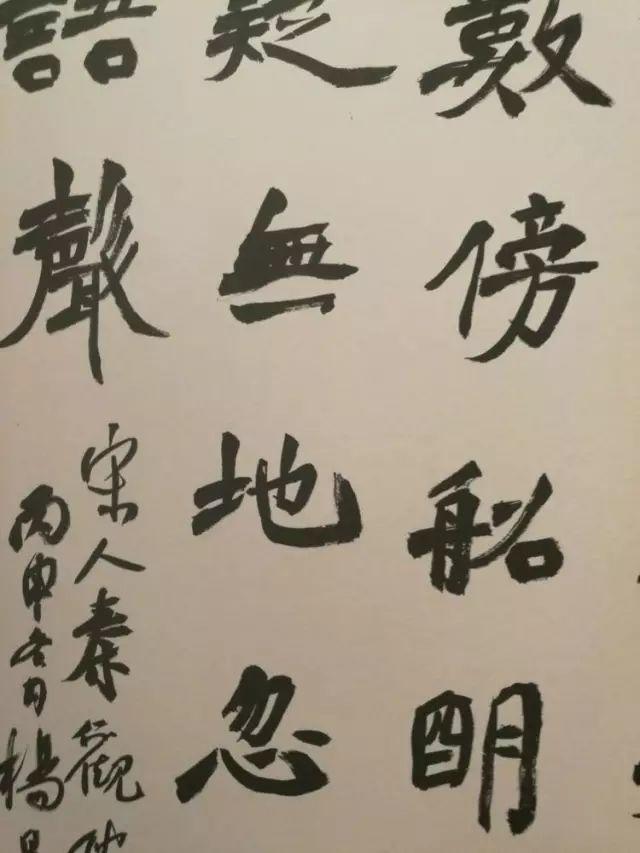 數傍船明
疑無地忽
語聲
宋人秦觀
丙申冬月楊